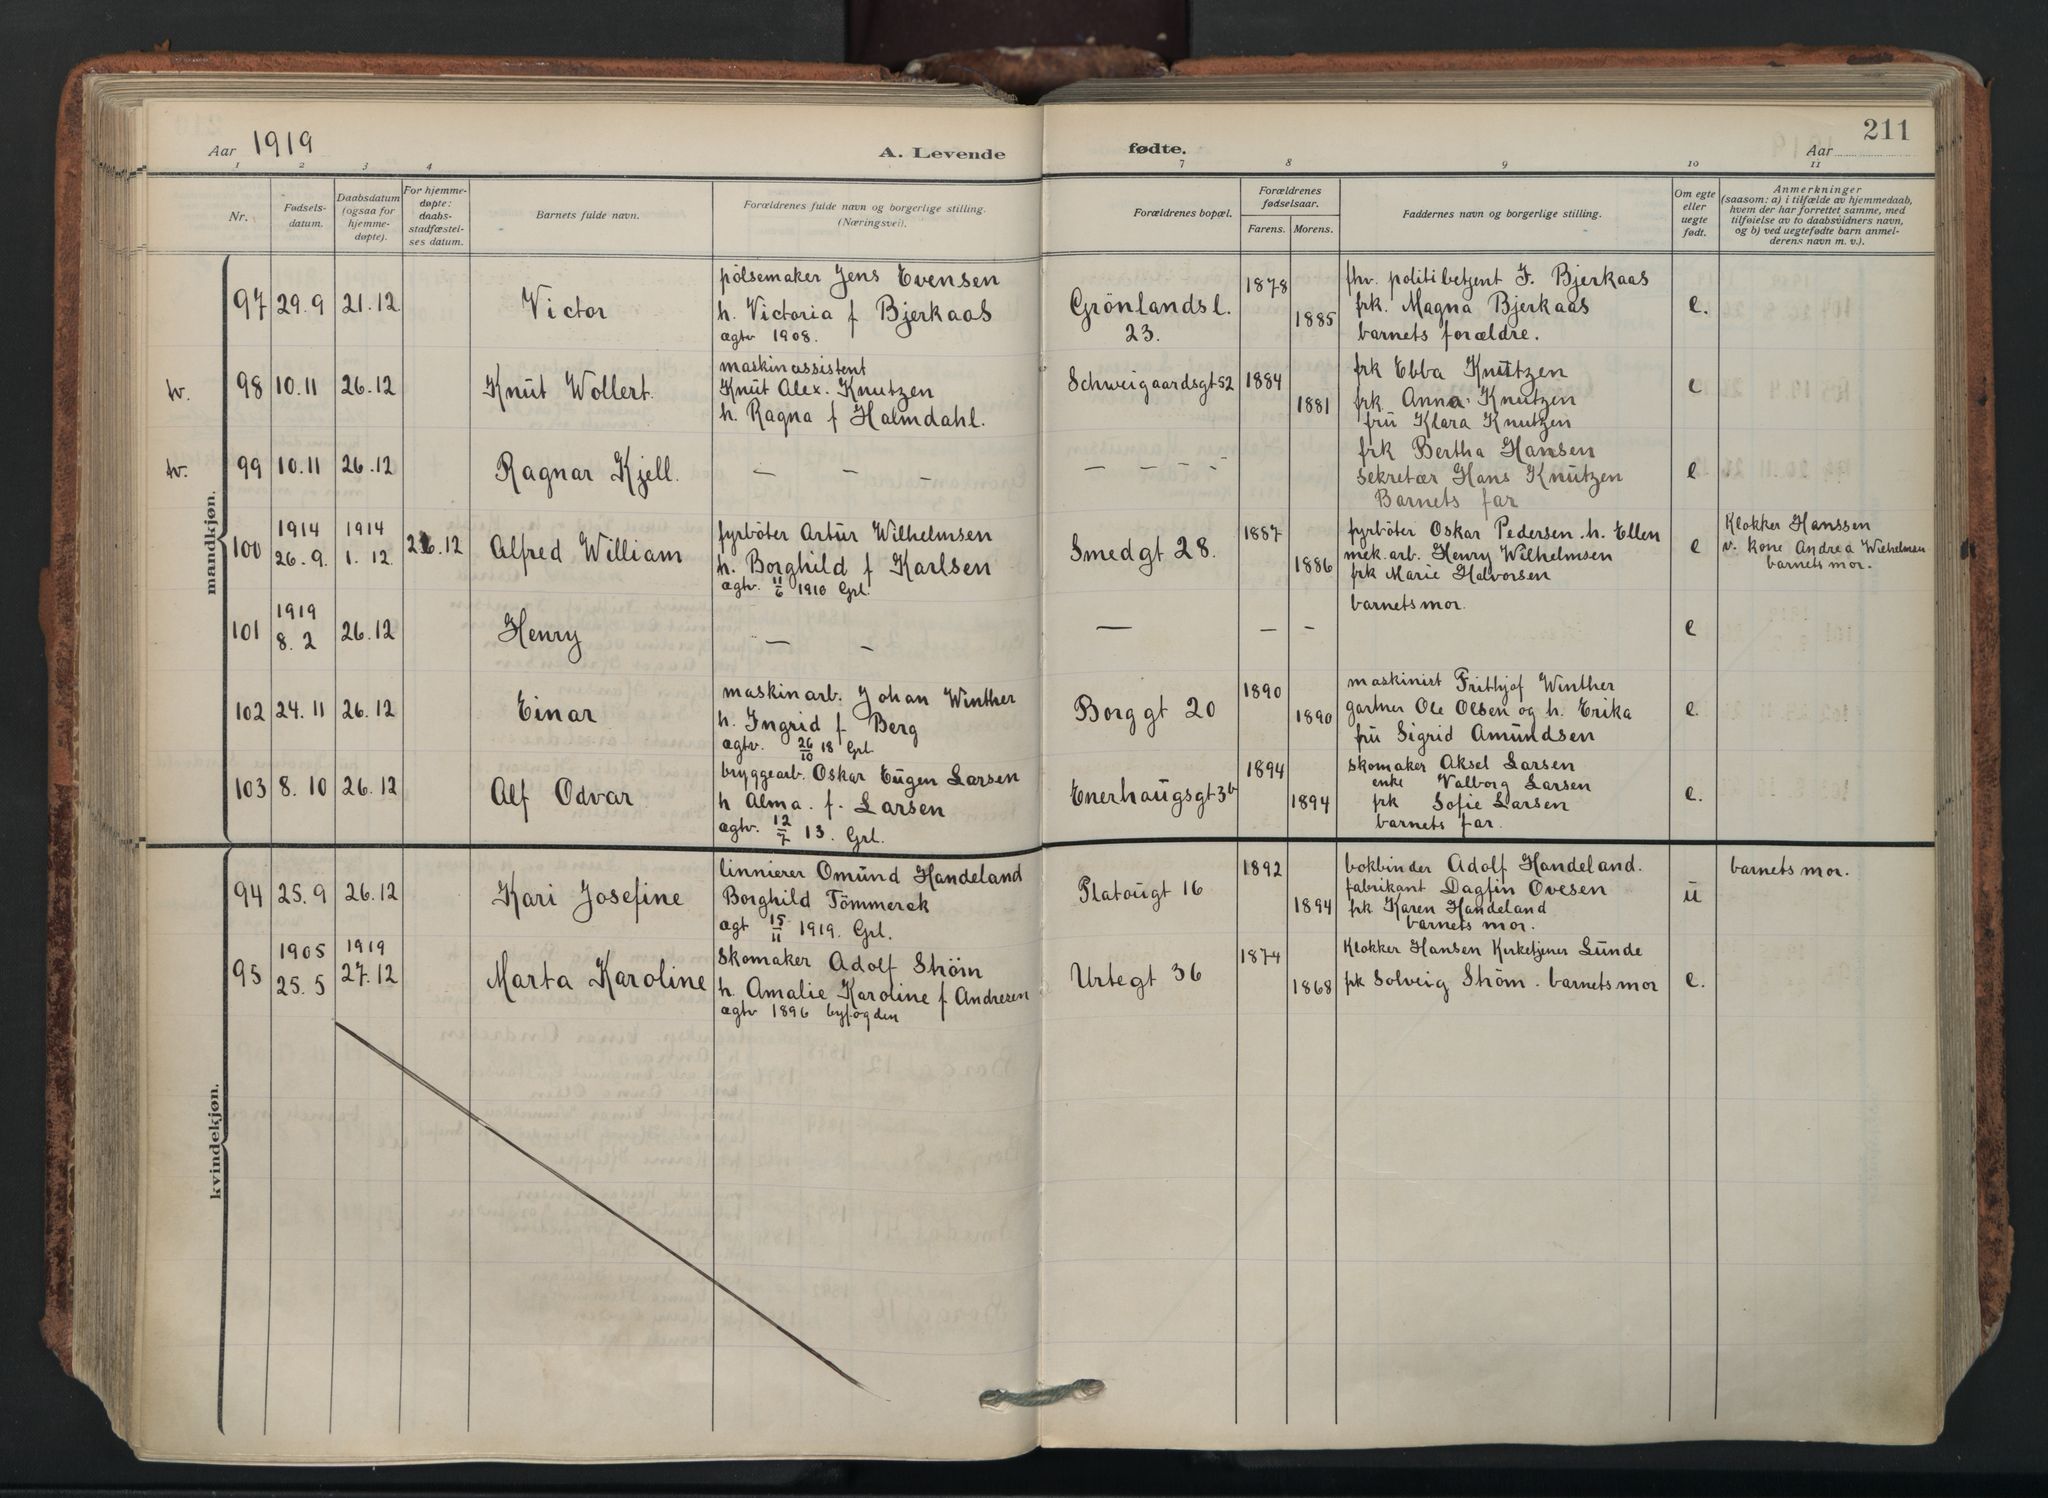 Aar 1919
A. Levende
fødte.
211
Aar
1 2 3 4 7 8 9 10 11
Nr.
Fødsels-
datum.
Daabsdatum
(ogsaa for
hjemme-
døpte).
For hjemme-
døpte:
daabs-
stadfæstel-
ses datum.
Barnets fulde navn.
Forældrenes fulde navn og borgerlige stilling.
(Næringsvei).
Forældrenes bopæl.
Forældrenes
fødselsaar.
Farens. Morens.
Faddernes navn og borgerlige stilling.
Om egte
eller
uegte
født.
Anmerkninger
(saasom: a) i tilfælde av hjemmedaab,
hvem der har forrettet samme, med
tilføielse av to daabsvidners navn,
og b) ved uegtefødte barn anmel-
derens navn m. v.).
mandkjøn.
97 29.9 21.12 Victor
pölsemaker Jens Evensen
h. Victoria f Bjerkaas
ægtv 1908.
Grönlandsl.
23.
1878
1885
fhv. politibetjent J. Bjerkaas
frk. Magna Bjerkaas
barnets forældre.
e.
tv. 98 10.11 26.12 Knut Wollert.
maskinassistent
Knut Alex. Knutzen
h. Ragna f Halmdahl.
Schweigaardsgt 52
1884
1881
frk Ebba Knutzen
frk Anna Knutzen
fru Klara Knutzen
e
tv. 99 10.11 26.12 Ragnar Kjell. — — -
— — - -
frk Bertha Hansen
sekretær Hans Knutzen
Barnets far
e
100
1914
26.9.
1914
1.12.
26.12
Alfred William
fyrböter Artur Wilhelmsen
h. Borghild f Karlsen
ægtv. 11/6 1910 Grl.
Smedgt 28.
1887
1886
fyrböter Oskar Pedersen. h. Ellen
mek. arb. Henry Wilhelmsen
frk Marie Halvorsen
barnets mor.
e
Klokker Hanssen
v. kone Andrea Wilhelmsen
barnets mor.
101
1919
8.2
26.12 Henry — -
— - -
e
102 24.11 26.12 Einar
maskinarb. Johan Winther
h. Ingrid f Berg
ægtv. 26/10 18 Grl.
Borggt 20
1890
1890
maskinist Frithjof Winther
gartner Ole Olsen og h. Erika
fru Sigrid Amundsen
e.
103 8.10 26.12 Alf Odvar
bryggearb. Oskar Eugen Larsen
h Alma. f. Larsen
ægtv. 12/7 13. Grl.
Enerhaugsgt 3b
1894
1894
skomaker Aksel Larsen
enke Valborg Larsen
frk Sofie Larsen
barnets far.
e.
kvindekjøn.
94 25.9 26.12 Kari Josefine
linnierer Omund Handeland
Borghild Tömmerek
ægt 15/11 1919. Grl.
Platougt 16
1892
1894
bokbinder Adolf Handeland.
fabrikant Dagfin Ovesen
frk Karen Handeland
barnets mor.
u
barnets mor.
95
1905
25.5
1919
27.12
Marta Karoline
skomaker Adolf Ström
h. Amalie Karoline f Andresen
ægtv 1896 byfogden
Urtegt 36
1874
1868
Klokker Hansen Kirketjener Lunde
frk Solveig Ström. barnets mor
e.